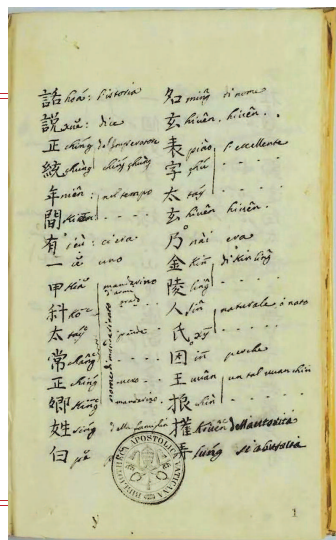 話 hoá : l'istoria
說 xuě : dice
正 chíng del Imperatore
統 chíng thùng
年 niên : nel tempo
間 kien
有 ièu : ci era
一 uno
甲 kiǎ mandarino
科 ko grado
太 táy grande
常
正 chíng
卿 mandarino
姓 síng della famiglia
白 pě
名 mîng di nome
玄 hiuên . hiuên .
表 piào l'eccellente
字
太 táy
玄 hiuên hiuên .
乃 nài era
金 kin di kin lîng
陵 lîng
人 jîn naturale ò nato
氏 xý
因 in perche
王 uâng un tal
振 chin
權 kiuên dell'autorità
弄 lúng si abusava
BIBLIOTHECA APOSTOLICA VATICANA
1